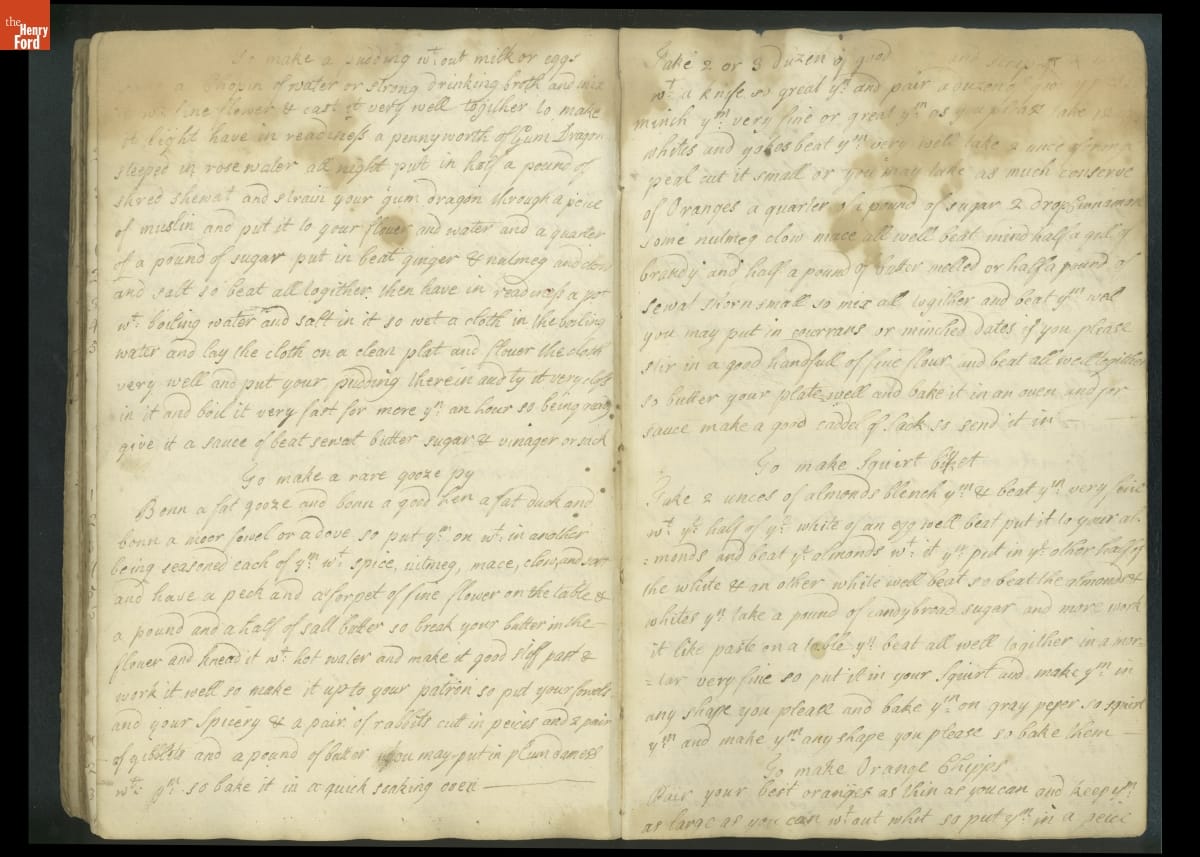 the
Henry
Ford
To make a pudding wt. out milk or eggs
a Chopin of water or strong drinking broth and mix
wt. fine flower & cast it very well togither to make
it light have in readiness a pennyworth of Gum Dragon
steeped in rosewater all night put in half a pound of
shred shewat and strain your gum dragon through a peice
of muslin and put it to your flower and water and a quarter
of a pound of sugar put in beat ginger & nutmeg and clow
and salt so beat all togither then have in readiness a pot
wt. boiling water and salt in it so wet a cloth in the boiling
water and lay the cloth on a clean plat and flower the cloth
very well and put your pudding therein and ty it very closs
in it and boil it very fast for more yn. an hour so being ready
give it a sauce of beat sewat butter sugar & vinager or sack
To make a rare gooze py
Bonn a fat gooze and bonn a good hen a fat duck and
bonn a moor fowel or a dove so put ym on wt. in another
being seasoned each of ym wt. spice, nutmeg, mace, clow, and salt
and have a peck and a forpet of fine flower on the table &
a pound and a half of salt butter so break your butter in the
flower and knead it wt. hot water and make it good stiff past &
work it well so make it up to your patron so put your fowels
and your spicery & a pair of rabbits cut in peices and 2 pair
of gibblets and a pound of butter you may put in plumdamess
wt. ym. so bake it in a quick soaking oven
Take 2 or 3 duzen of good and
wt. a knife so great yn and pair a duzen
minch ym very fine or great ym as you please take
whites and yokes beat ym very well take 2 unce of orange
peal cut it small or you may take as much conserve
of Oranges a quarter of a pound of sugar 2 drop Cinnamon
some nutmeg clow mace all well beat mind half a gill of
brandy and half a pound of butter melled or half a pound of
sewat shorn small so mix all togither and beat ym well
you may put in courrans or minched dates if you please
stir in a good handfull of fine flour and beat all well togither
so butter your plate well and bake it in an oven and for
sauce make a good caddel of sack so send it in
To make Squirt bisket
Take 2 unces of almonds blench ym & beat ym very fine
wt. ye half of ye white of an egg well beat put it to your al-
=monds and beat ye almonds wt. it yn put in ye other half of
the white & an other white well beat so beat the almonds &
whites yn take a pound of candybroad sugar and more work
it like paste on a table yn beat all well togither in a mor-
=tar very fine so put it in your Squirt and make ym in
any shape you please and bake ym on gray peper so squirt
ym and make ym any shape you please so bake them
To make Orange Chipps
Pair your best oranges as thin as you can and keep ym
as large as you can wt. out whit so put ym in a peice